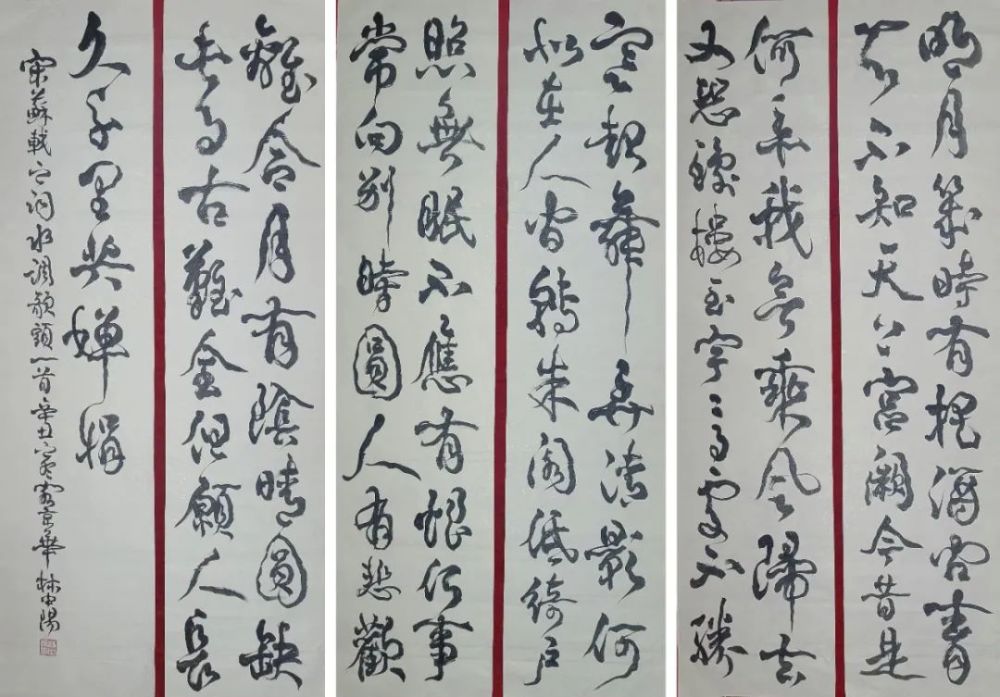 明月幾時有把酒問青
天不知天上宮闕今昔是
何年我欲乘風歸去
又恐瓊樓玉宇高處不勝
寒起舞弄清影何
似在人間轉朱閣低綺戶
照無眠不應有恨何事
常向別時圓人有悲歡
離合月有陰晴圓缺
此事古難全但願人長
久千里共嬋娟
宋蘇軾之詞水調歌頭一首辛丑京華林陽